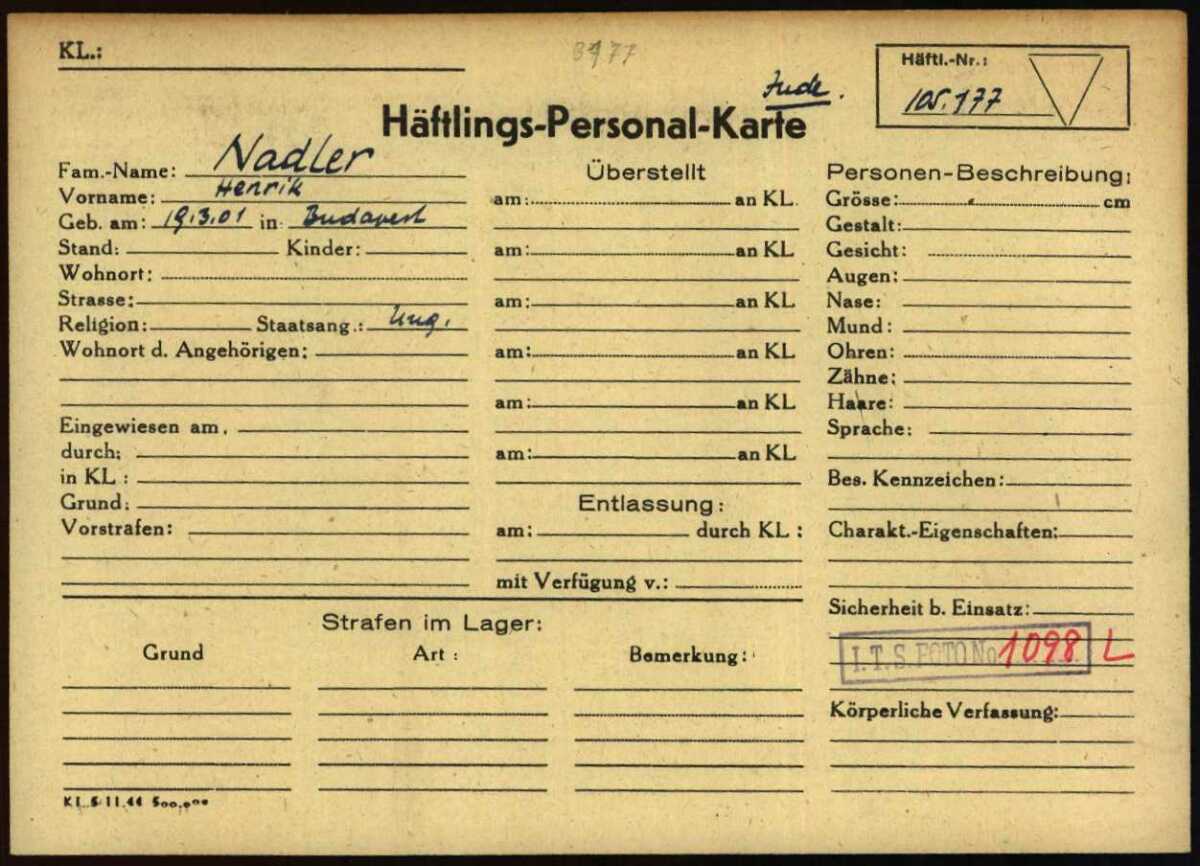 KL.:
8977
Häftl.-Nr.:
105.177
Jude.
Häftlings-Personal-Karte
Fam.-Name: Nadler
Vorname: Henrik
Geb. am: 19.3.01 in Budapest
Stand: Kinder:
Wohnort:
Strasse:
Religion: Staatsang.: Ung.
Wohnort d. Angehörigen:
Eingewiesen am.
durch:
in KL :
Grund:
Vorstrafen:
Überstellt
am: an KL.
am: an KL
am: an KL
am: an KL
am: an KL
am: an KL
Entlassung:
am: durch KL :
mit Verfügung v.:
Personen-Beschreibung:
Grösse: cm
Gestalt:
Gesicht:
Augen:
Nase:
Mund:
Ohren:
Zähne:
Haare:
Sprache:
Bes. Kennzeichen:
Charakt.-Eigenschaften:
Sicherheit b. Einsatz:
I.T.S. FOTO No 1098 L
Körperliche Verfassung:
Strafen im Lager:
Grund Art : Bemerkung:
KL 5 11.44 500.000